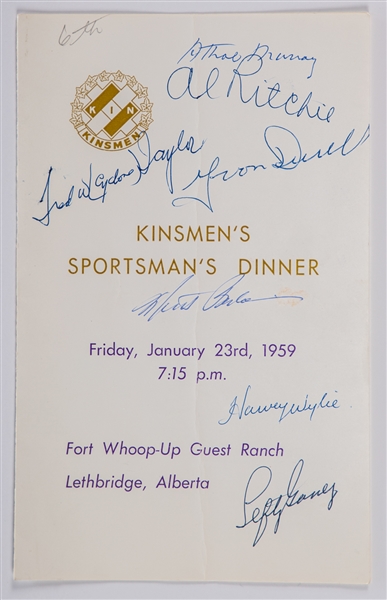 6th
Athol Murray
Al Ritchie
KIN
KINSMEN
Fred W "Cyclone" Taylor
Yvon Durelle
KINSMEN'S
SPORTSMAN'S DINNER
Friday, January 23rd, 1959
7:15 p.m.
Harvey Wylie
Fort Whoop-Up Guest Ranch
Lethbridge, Alberta
Lefty Gomez